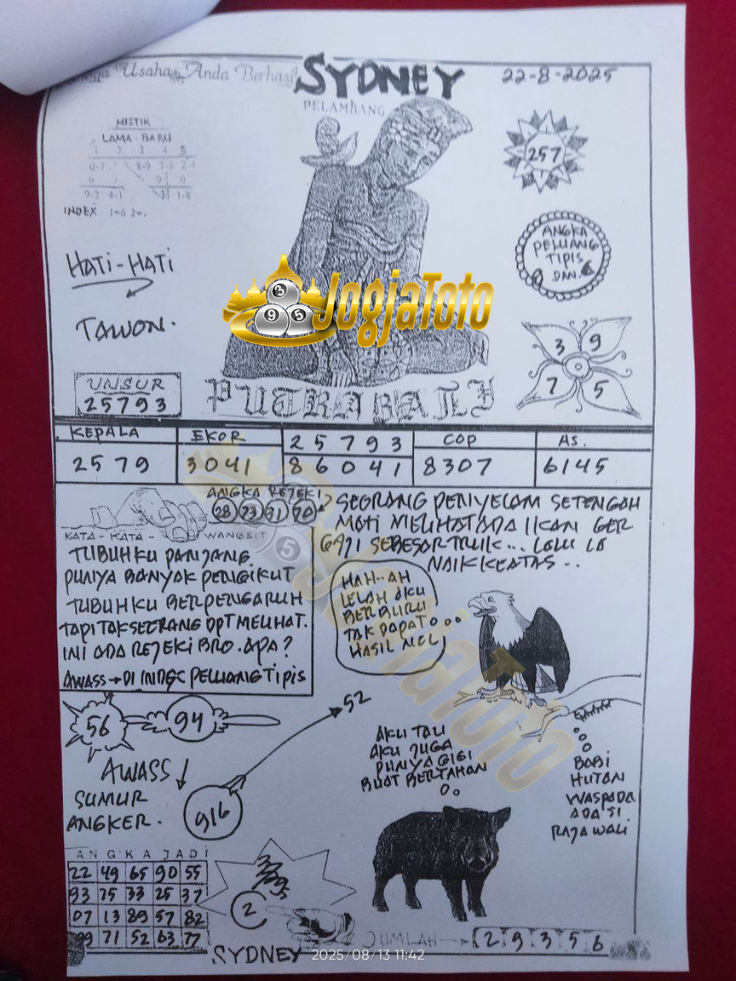 Usaha Anda Berhasil
SYDNEY
22-8-2025
PELAMBANG
MISTIK
LAMA-BARU
INDEX
257
ANGKA
PELUANG
TIPIS
DAN
HATI-HATI
TAWON.
JogjaToto
3 9
7 5
UNSUR
25793
PUTRA BALI
KEPALA EKOR 25793 COP AS.
2579 3041 86041 8307 6145
ANGKA REJEKI
28 73 31 70
KATA-KATA- WANGSIT
TUBUHKU PANJANG.
PUNYA BANYAK PENGIKUT
TUBUHKU BERPENGARUH
TAPI TAK SEORANG DPT MELIHAT.
INI ADA REJEKI BRO. APA?
AWASS → DI INDEC PELUANG TIPIS
SEORANG PENYELAM SETENGAH
MATI MELIHAT ADA IKAN GER
GAJI SEBESAR TRUK... LALU IA
NAIK KEATAS..
HAH..AH
LELAH AKU
BERBURU
TAK DAPAT
HASIL NOL
56 94
52
AWASS
SUMUR
ANGKER.
916
AKU TAU
AKU JUGA
PUNYA GIGI
BUAT BERTAHAN
BABI
HUTAN
WASPADA
ADA SI
RAJAWALI
ANGKA JADI
22 49 65 90 55
93 75 33 25 37
07 13 89 57 82
99 71 52 63 77
2
SYDNEY
JUMLAH → 2 9 3 5 6
2025/08/13 11:42
JogjaToto